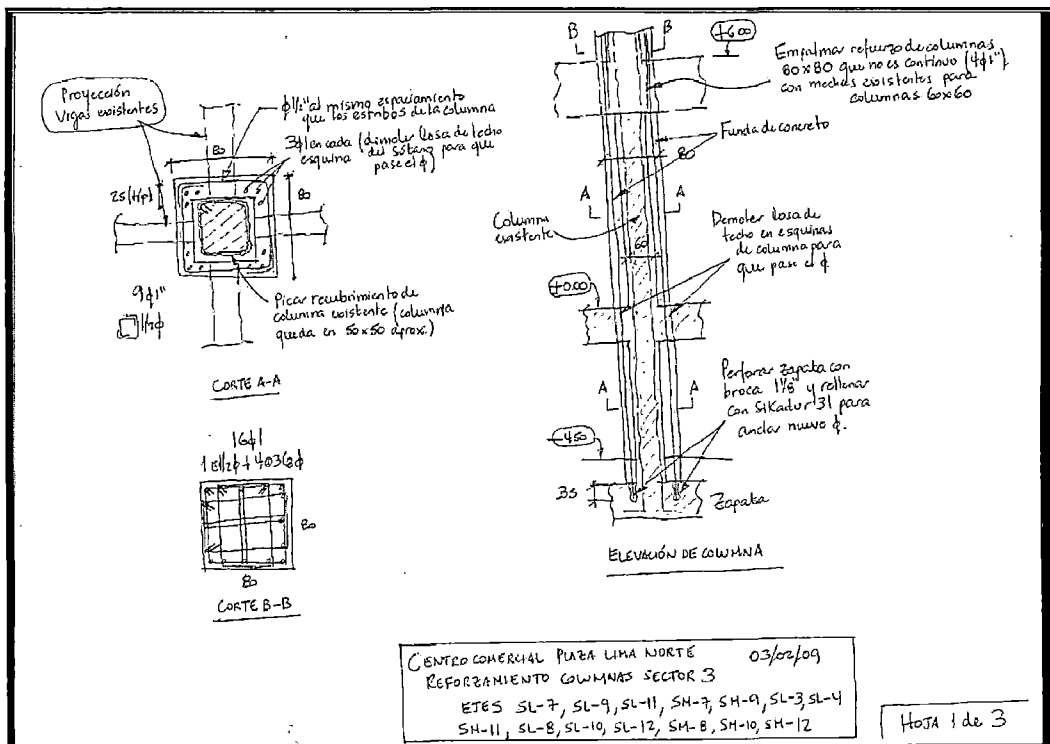 Proyección
Vigas existentes
φ 1/2" al mismo espaciamiento
que los estribos de la columna
80
3φ1 en cada (dimoler losa de techo
esquina del sótano para que
pase el φ)
25 (t/p)
80
9φ1"
1/2φ
Picar recubrimiento de
columna existente (columna
queda en 50x50 aprox.)
CORTE A-A
16φ1
80
80
CORTE B-B
B
B
+6.00
Empalmar refuerzo de columnas
80x80 que no es continuo (4φ1")
con mechas existentes para
columnas 60x60
Funda de concreto
80
A
A
Columna
existente
60
Demoler losa de
techo en esquinas
de columna para
que pase el φ
+0.00
A
A
Perforar zapata con
broca 1 1/8" y rellenar
con Sikadur 31 para
anclar nuevo φ.
-4.50
35
Zapata
ELEVACIÓN DE COLUMNA
CENTRO COMERCIAL PLAZA LIMA NORTE 03/02/09
REFORZAMIENTO COLUMNAS SECTOR 3
EJES SL-7, SL-9, SL-11, SH-7, SH-9, SL-3, SL-4
SH-11, SL-8, SL-10, SL-12, SH-8, SH-10, SH-12
HOJA 1 de 3